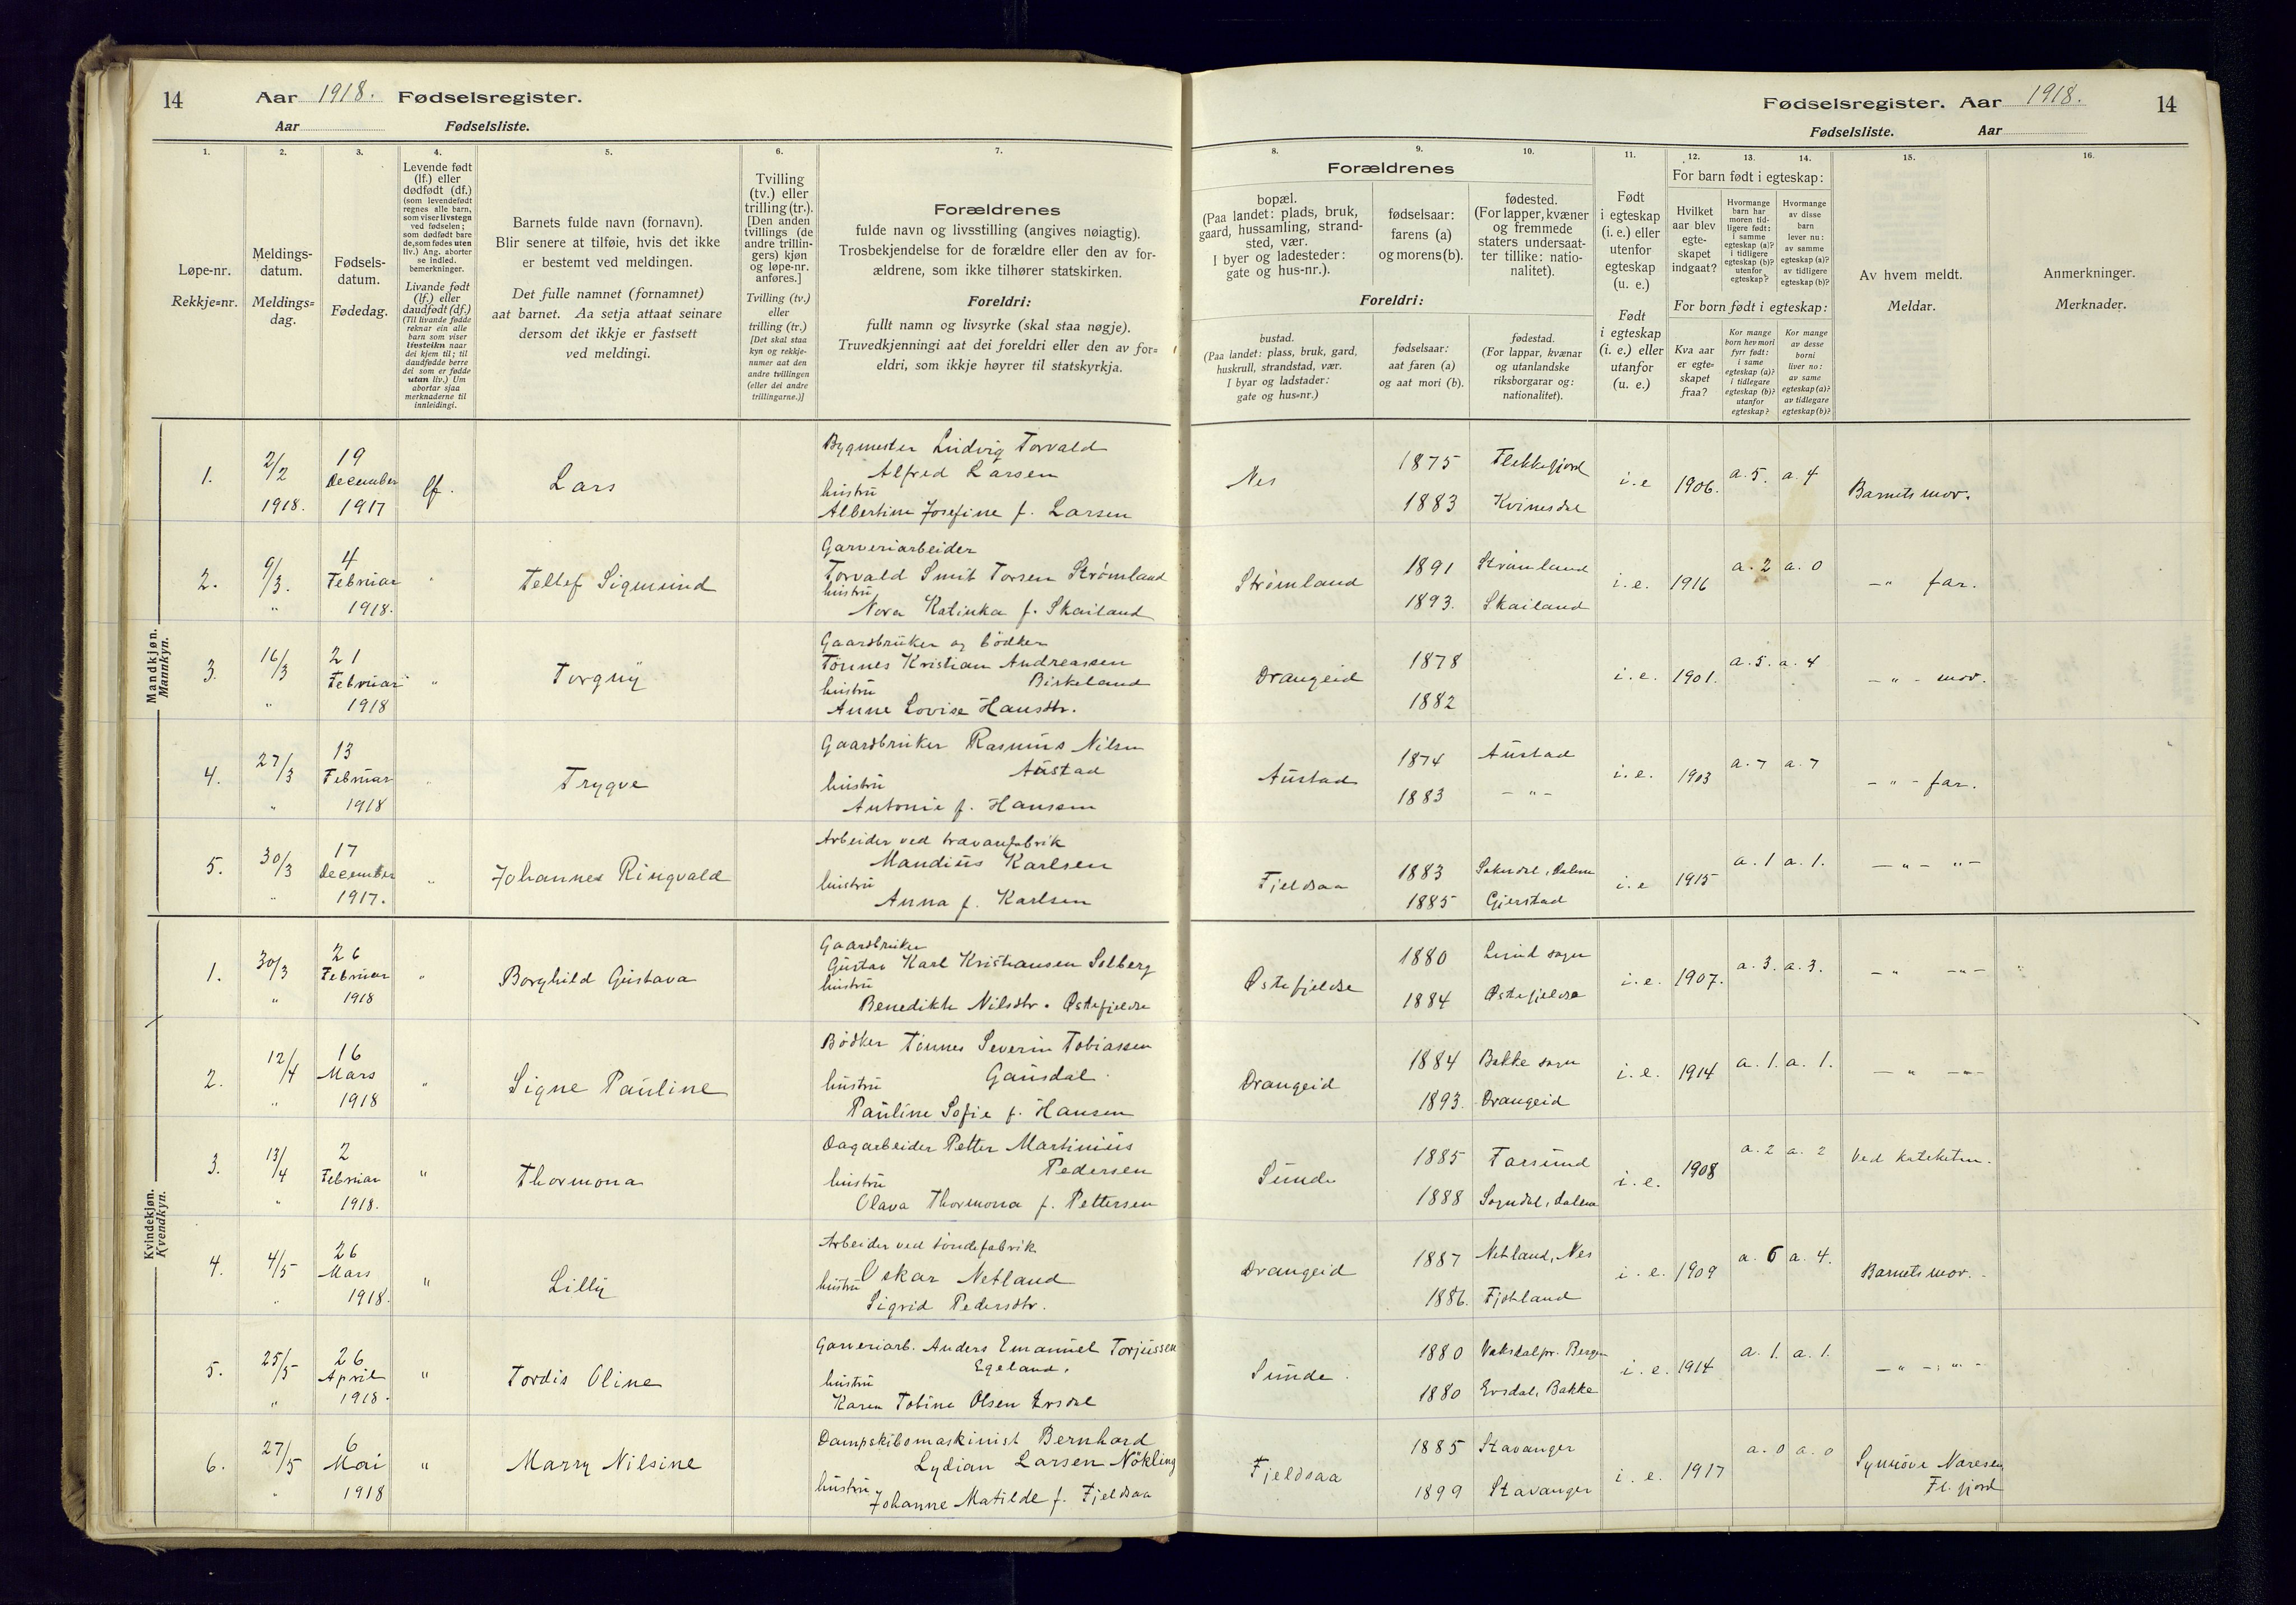 14 Aar 1918. Fødselsregister.
Aar Fødselsliste.
1. 2. 3. 4. 5. 6. 7.
Løpe-nr.
Rekkje=nr.
Meldings-
datum.
Meldings=
dag.
Fødsels-
datum.
Fødedag.
Levende født
(lf.) eller
dødfødt (df.)
(som levendefødt
regnes alle barn,
som viser livstegn
ved fødselen;
som dødfødt bare
de, som fødes uten
liv.) Ang. aborter
se indled.
bemerkninger.
Livande født
(lf.) eller
daudfødt (df.)
(Til livande fødde
reknar ein alle
barn som viser
livsteikn naar
dei kjem til; til
daudfødde berre
dei som er fødde
utan liv.) Um
abortar sjaa
merknaderne til
innleidingi.
Barnets fulde navn (fornavn).
Blir senere at tilføie, hvis det ikke
er bestemt ved meldingen.
Det fulle namnet (fornamnet)
aat barnet. Aa setja attaat seinare
dersom det ikkje er fastsett
ved meldingi.
Tvilling
(tv.) eller
trilling (tr.).
[Den anden
tvillings (de
andre trillin-
gers) kjøn
og løpe-nr.
anføres.]
Tvilling (tv.)
eller
trilling (tr.)
[Det skal staa
kyn og rekkje-
numer aat den
andre tvillingen
(eller dei andre
trillingarne.)]
Forældrenes
fulde navn og livsstilling (angives nøiagtig).
Trosbekjendelse for de forældre eller den av for-
ældrene, som ikke tilhører statskirken.
Foreldri:
fullt namn og livsyrke (skal staa nøgje).
Truvedkjenningi aat dei foreldri eller den av for=
eldri, som ikkje høyrer til statskyrkja.
Mandkjøn.
Mannkyn.
1. 2/2 1918. 19 December 1917 lf. Lars
Bygmester Ludvig Torvald
Alfred Larsen
hustru
Albertine Josefine f. Larsen
2. 9/3. " 4 Februar 1918. " Tellef Sigmund
Garveriarbeider
Torvald Smit Torsen Strømland
hustru
Nora Katinka f. Skailand
3. 16/3 " 21 Februar 1918 " Torguy
Gaardbruker og bødker
Tönnes Kristian Andreassen
Birkeland
hustru
Anne Lovise Hansdtr.
4. 27/3 " 13 Februar 1918 " Trygve
Gaardbruker Rasmus Nilsen
Austad
hustru
Antonie f. Hansen
5. 30/3 " 17 December 1917. " Johannes Ringvald
Arbeider ved trævarefabrik
Mandius Karlsen
hustru
Anna f. Karlsen
Kvindekjøn.
Kvendkyn.
1. 30/3 " 26 Februar 1918 " Borghild Gustava
Gaardbruker
Gustav Karl Kristiansen Solberg
hustru
Benedikte Nilsdtr. Østefjeldse
2. 12/4 " 16 Mars 1918 " Signe Pauline
Bödker Tönnes Severin Tobiassen
Gausdal.
hustru
Pauline Sofie f. Hansen
3. 13/4 " 2 Februar 1918. " Thormona
Dagarbeider Petter Martinius
Pedersen
hustru
Olava Thormona f. Pettersen
4. 4/5 " 26 Mars 1918. " Lilly
Arbeider ved töndefabrik
Oskar Netland
hustru
Sigrid Pedersdtr.
5. 25/5 " 26 April 1918. " Tordis Oline
Garveriarb. Anders Emanuel Torjussen
Egeland.
hustru
Karen Tobine Olsen Ersdal
6. 27/5 " 6 Mai 1918 " Marry Nilsine
Dampskibsmaskinist Bernhard
Lydian Larsen Nökling
hustru
Johanne Matilde f. Fjeldsaa
Fødselsregister. Aar 1918. 14
Fødselsliste. Aar
8. 9. 10. 11. 12. 13. 14. 15. 16.
Forældrenes
bopæl.
(Paa landet: plads, bruk,
gaard, hussamling, strand-
sted, vær.
I byer og ladesteder:
gate og hus-nr.).
fødselsaar:
farens (a)
og morens (b).
fødested.
(For lapper, kvæner
og fremmede
staters undersaat-
ter tillike: natio-
nalitet).
Foreldri:
bustad.
(Paa landet: plass, bruk, gard,
huskrull, strandstad, vær.
I byar og ladstader:
gate og hus=nr.)
fødselsaar:
aat faren (a)
og aat mori (b).
fødestad.
(For lappar, kvænar
og utanlandske
riksborgarar og:
nationalitet).
Født
i egteskap
(i. e.) eller
utenfor
egteskap
(u. e.)
Født
i egteskap
(i. e.) eller
utanfor
(u. e.)
For barn født i egteskap:
Hvilket
aar blev
egte-
skapet
indgaat?
Hvormange
barn har
moren tid-
ligere født:
i samme
egteskap (a)?
i tidligere
egteskap (b)?
utenfor
egteskap?
Hvormange
av disse
barn
lever nu:
av samme
egteskap (a)?
av tidligere
egteskap (b)?
For born født i egteskap:
Kva aar
er egte-
skapet
fraa?
Kor mange
born hev mori
fyrr født:
i same
egteskap (a)?
i tidlegare
egteskap (b)?
utanfor
egteskap?
Kor mange
av desse
borni
liver no:
av same
egteskap (a)?
av tidlegare
egteskap (b)?
Av hvem meldt.
Meldar.
Anmerkninger.
Merknader.
Nes 1875 Flekkefjord 1883 Kvinesdal i. e 1906. a. 5. a. 4 Barnets mor.
Strømland 1891 Strømland 1893. Skailand i. e. 1916 a. 2 a. 0 - " far.
Drangeid 1878 1882 i. e. 1901. a. 5. a. 4 - " - mor.
Austad 1874 Austad 1883 - " - i. e. 1903 a. 7 a. 7 - " - far.
Fjeldsaa 1883 Sokndal, Dalene 1885 Gjerstad i. e 1915 a. 1 a. 1. - " - " -
Østefjeldse 1880 Lund sogn 1884 Østefjeldse i. e. 1907. a. 3. a. 3. - " - " -
Drangeid 1884 Bakke sogn 1893. Drangeid i. e. 1914 a. 1. a. 1. - " - " -
Sunde 1885 Farsund 1888 Sogndal, Dalene i. e. 1908 a. 2 a. 2 Ved kateketen.
Drangeid 1887 Netland, Nes 1886. Fjotland i. e. 1909 a. 6 a. 4. Barnets mor.
Sunde. 1880 Vaksdal pr. Bergen 1880 Ersdal, Bakke i. e. 1914 a. 1. a. 1. - " - " -
Fjeldsaa 1885 Stavanger 1899 Stavanger i. e. 1917 a. 0 a. 0 Synnöve
Fl. fjord